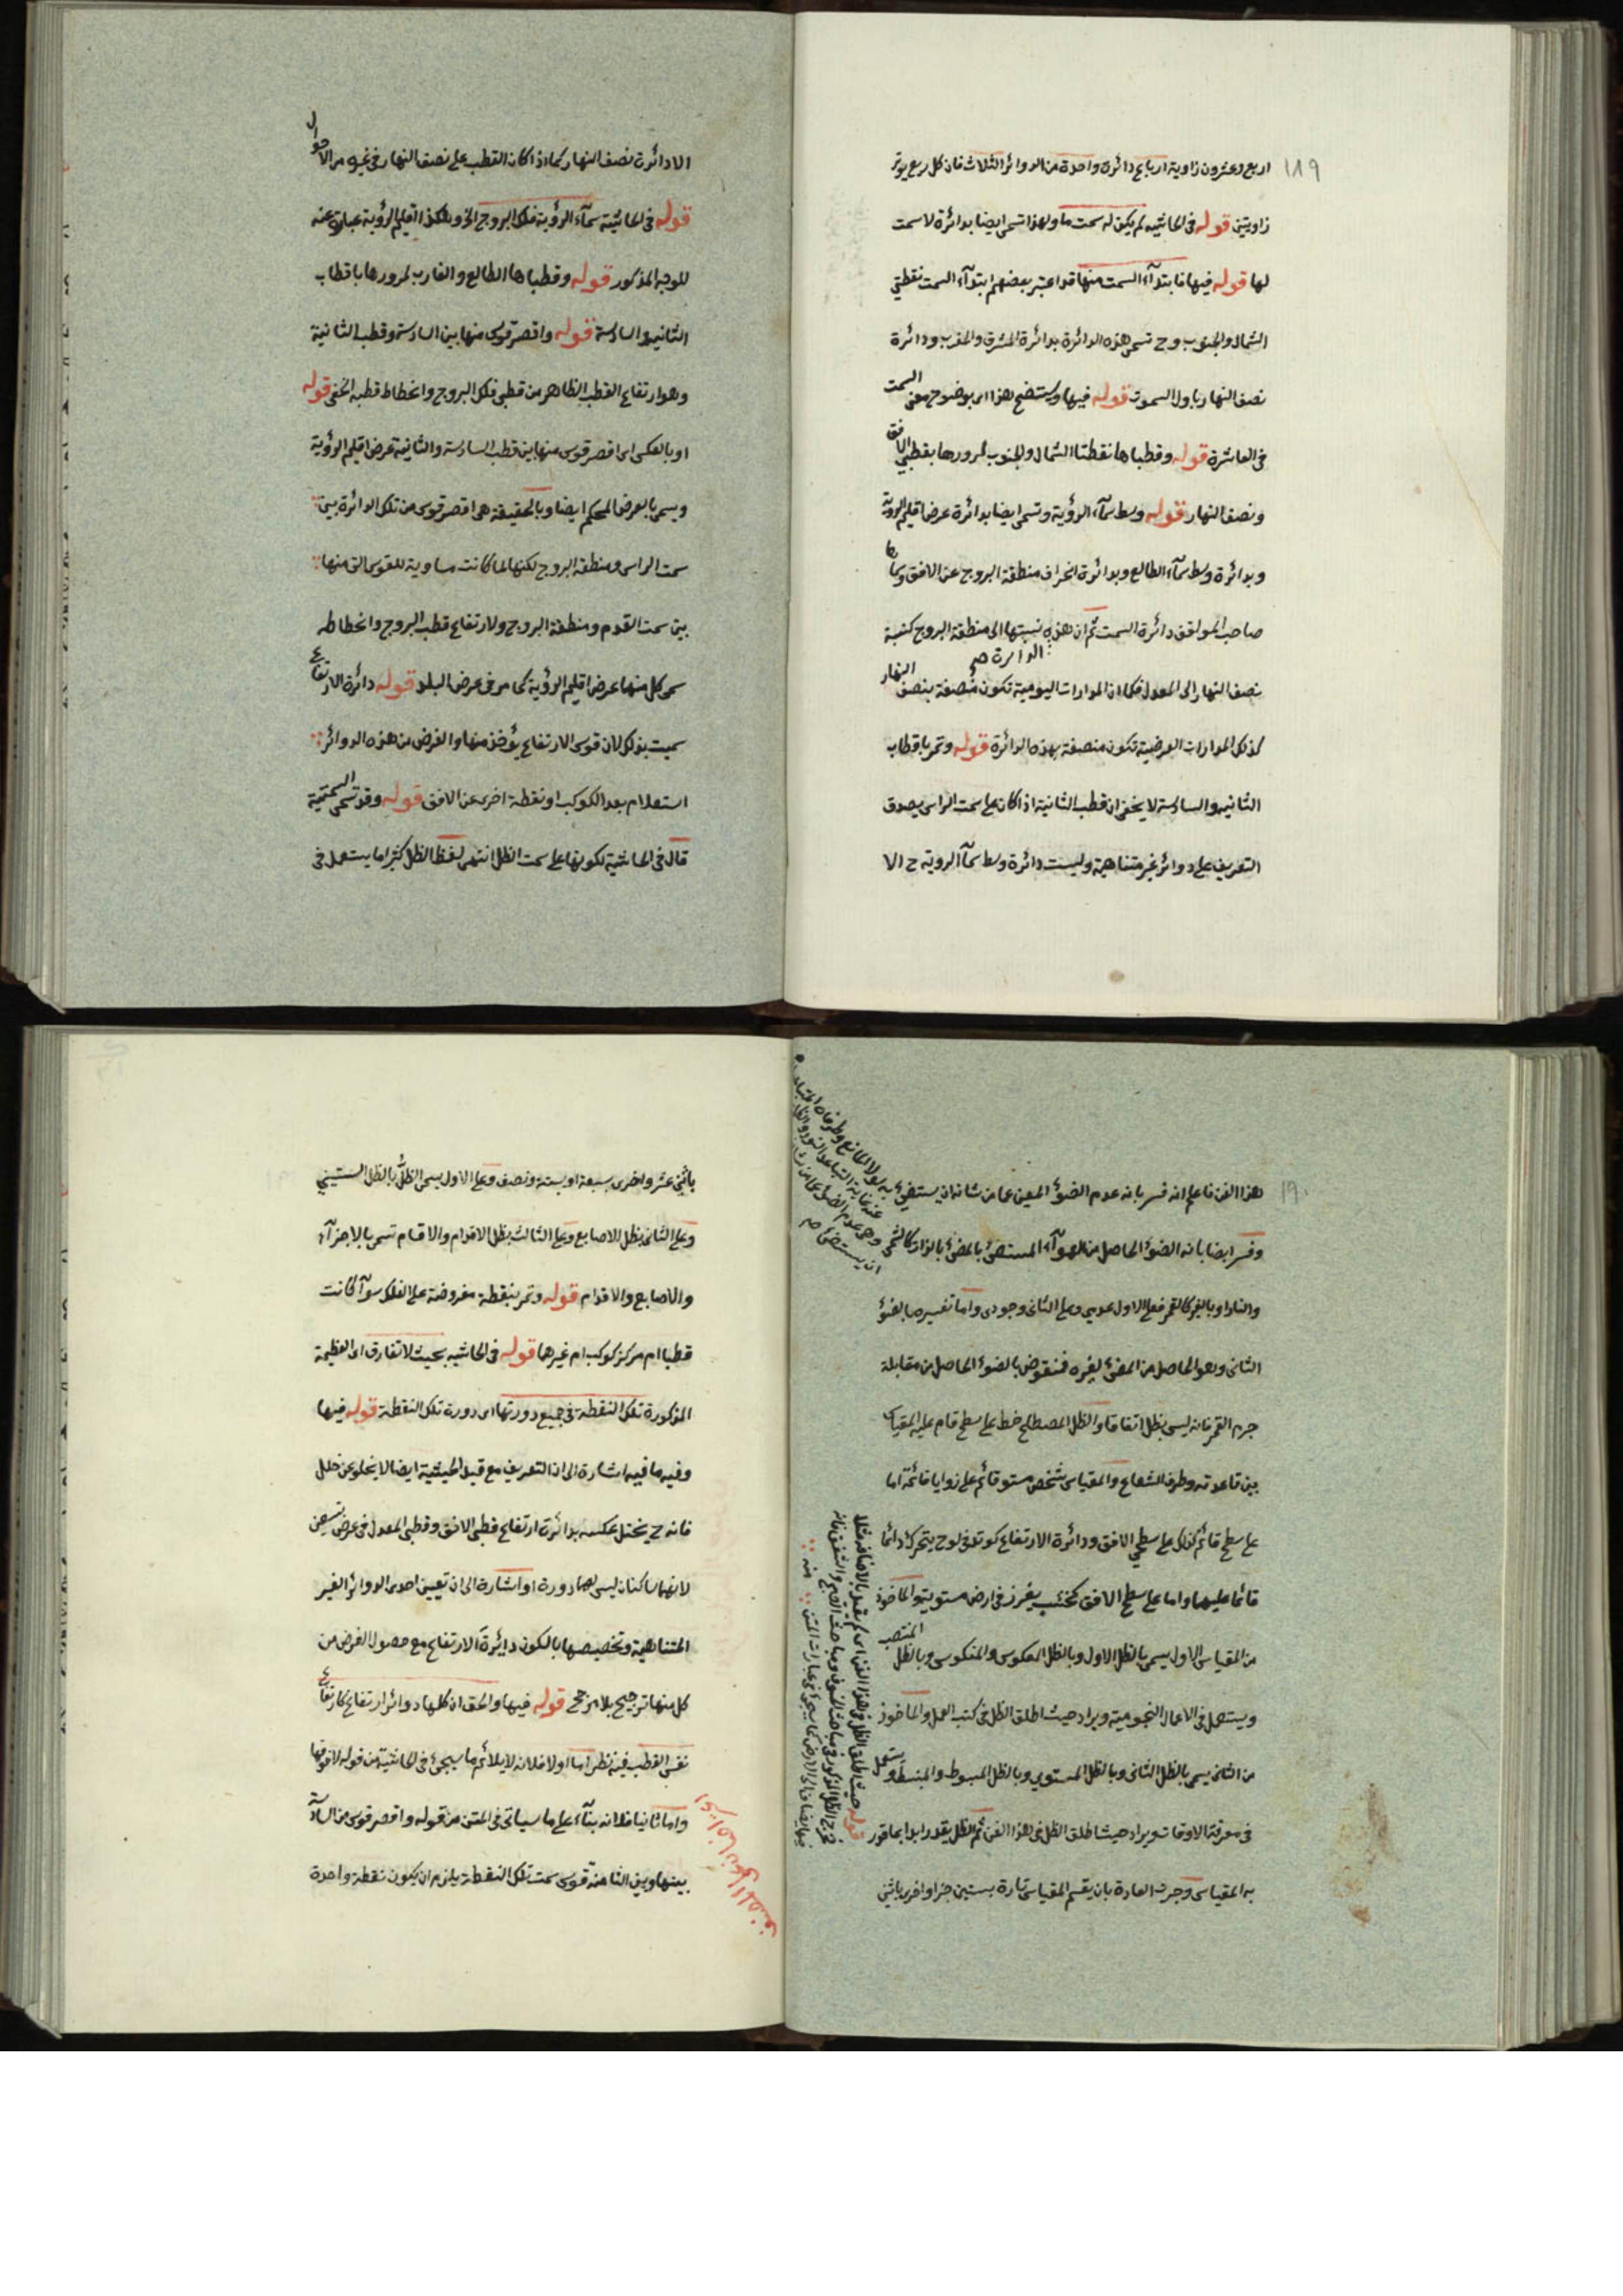 ١٨٩
اربع وعشرون زاوية ارباع دائرة واحدة من الدوائر الثلاث فان كل ربع يوتر
زاويتين قوله فى الحاشية لم يكن له سمت ما ولهذا تسمى ايضا بدائرة لا سمت
لها قوله فيها فابتدآء السمت منها قد اعتبر بعضهم ابتدآء السمت نقطتى
الشمال والجنوب وح تسمى هذه الدائرة بدائرة المشرق والمغرب ودائرة
نصف النهار باول السموت قوله فيها وستضح هذا اى بوضوح معنى السمت
فى العاشرة قوله وقطباها نقطتا الشمال والجنوب لمرورها بقطبي الافق
ونصف النهار قوله وسط سمآء الرؤية وتسمى ايضا بدائرة عرض اقليم الروية
وبدائرة وسط سمآء الطالع وبدائرة انحراف منطقة البروج عن الافق وسماها
صاحب المواقف دائرة السمت ثم ان هذه نسبتها الى منطقة البروج كنسبة
الدائرة صح
نصف النهار الى المعدل فكما ان المدارات اليومية تكون منصفة بنصف النهار
كذلك المدارات العرضية تكون منصفة بهذه الدائرة قوله وتمر باقطاب
الثانية والسادسة لا يخفى ان قطب الثانية اذا كان على سمت الراس يصدق
التعريف على دوائر غير متناهية وليست دائرة وسط سمآ الروية ح الا
الا دائرة نصف النهار كما اذا كان القطب على نصف النهار فى غيره من الاحوال
قوله فى الحاشية سمآء الرؤية فلك البروج الخ وهكذا اقليم الرؤية عبارة عنه
للوجه المذكور قوله وقطباها الطالع والغارب لمرورها باقطاب
الثانية والسادسة قوله واقصر قوس منها بين السادسة وقطب الثانية
وهو ارتفاع القطب الظاهر من قطبى فلك البروج وانحطاط قطبه الخفى قوله
او بالعكس اى اقصر قوس منها بين قطب السادسة والثانية عرض اقليم الرؤية
ويسمى بالعرض المحكم ايضا وبالحقيقة هى اقصر قوس من تلك الدائرة بين
سمت الراس ومنطقة البروج لكنها لما كانت مساوية للقوس التى منها
بين سمت القدم ومنطقة البروج ولارتفاع قطب البروج وانحطاطه
سمى كل منها عرض اقليم الرؤية كما مر فى عرض البلد قوله دائرة الارتفاع
سميت بذلك لان قوس الارتفاع يؤخذ منها والغرض من هذه الدوائر
استعلام بعد الكوكب او نقطة اخرى عن الافق قوله وقد تسمى السمتية
قال فى الحاشية لكونها على سمت الظل انتهى لفظ الظل كثيرا ما يستعمل فى
١٩٠
هذا الفن فاعلم انه فسر بانه عدم الضوئ المعين عما من شانه ان يستضئ
به لولا المانع
وهى عدم الضوئ عما من شانه
ان يستضئ صح
وفسر ايضا بانه الضوئ الحاصل من الهوآء المستضئ بالمضئ بالذات كالشمس
والنار او بالغير كالقمر فعلى الاول عدمي وعلى الثانى وجودى واما تفسيره بالضوئ
الثانى وهو الحاصل من المضئ لغيره فمنقوض بالضوئ الحاصل من مقابلة
جرم القمر فانه ليس بظل اتفاقا والظل المصطلح خط على سطح قام عليه المقياس
بين قاعدته وطرف الشعاع والمقياس شخص مستو قائم على زوايا قائمة اما
على سطح قائم كذلك على سطحي الافق ودائرة الارتفاع كوتد فى لوح يتحرك دائما
قائما عليها واما على سطح الافق كخشب يغرز فى ارض مستوية والماخوذ
من المقياس الاول يسمى بالظل الاول وبالظل المعكوس والمنكوس وبالظل المنتصب
ويستعمل فى الاعمال النجومية ويراد حيث اطلق الظل فى كتب العمل والماخوذ
من الثانى يسمى بالظل الثانى وبالظل المستوي وبالظل المبسوط والمنبسط ويستعمل
فى معرفة الاوقات ويراد حيث اطلق الظل فى هذا الفن ثم الظل يقدر ابدا بما قدر
به المقياس وجرت العادة بان يقسم المقياس تارة بستين جزا واخرى باثنى
قوله حيث اطلق الظل فى هذا الفن اى لم يقيد بالاضافة مثلا
باثنى عشر واخرى بسبعة او بستة ونصف وعلى الاول يسمى الظل بالظل الستيني
وعلى الثانى بظل الاصابع وعلى الثالث بظل الاقدام والاقسام تسمى بالاجزآء
والاصابع والاقدام قوله وتمر بنقطة مفروضة على الفلك سوآء كانت
قطبا ام مركز كوكب ام غيرها قوله فى الحاشية بحيث لا تفارق اى العظيمة
المذكورة تلك النقطة فى جميع دورتها اى دورة تلك النقطة قوله فيها
وفيه ما فيه اشارة الى ان التعريف مع قيد الحيثية ايضا لا يخلو عن خلل
فانه ح يختل عكسه بدائرة ارتفاع قطبى الافق وقطبى المعدل فى عرض تسعين
لانهما ساكنان ليس لهما دورة او اشارة الى ان تعيين احدى الدوائر الغير
المتناهية وتخصيصها بالكون دائرة الارتفاع مع حصول الغرض من
كل منها ترجيح بلا مرجح قوله فيها والحق ان كلها دوائر ارتفاع كارتفاع
نفس القطب فيه نظر اما اولا فلانه لا يلائم ما سيجئ فى الحاشية من قوله لا فوقها
واما ثانيا فلانه بنآء على ما سياتى فى المتن من قوله واقصر قوس من السادسة
بينها وبين الثامنة قوس سمت تلك النقطة يلزم ان يكون نقطة واحدة